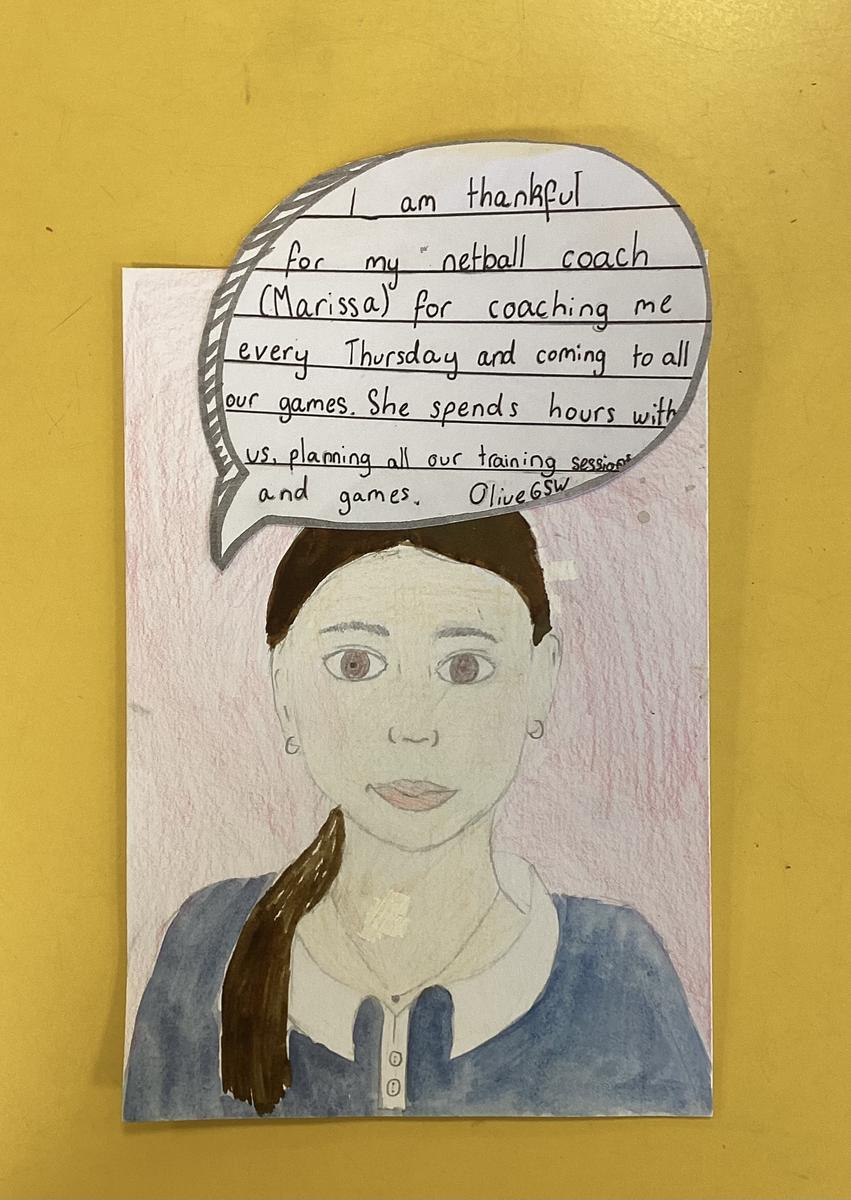 I am thankful
for my netball coach
(Marissa) for coaching me
every Thursday and coming to all
our games. She spends hours with
us, planning all our training sessions
and games. Olive 6SW